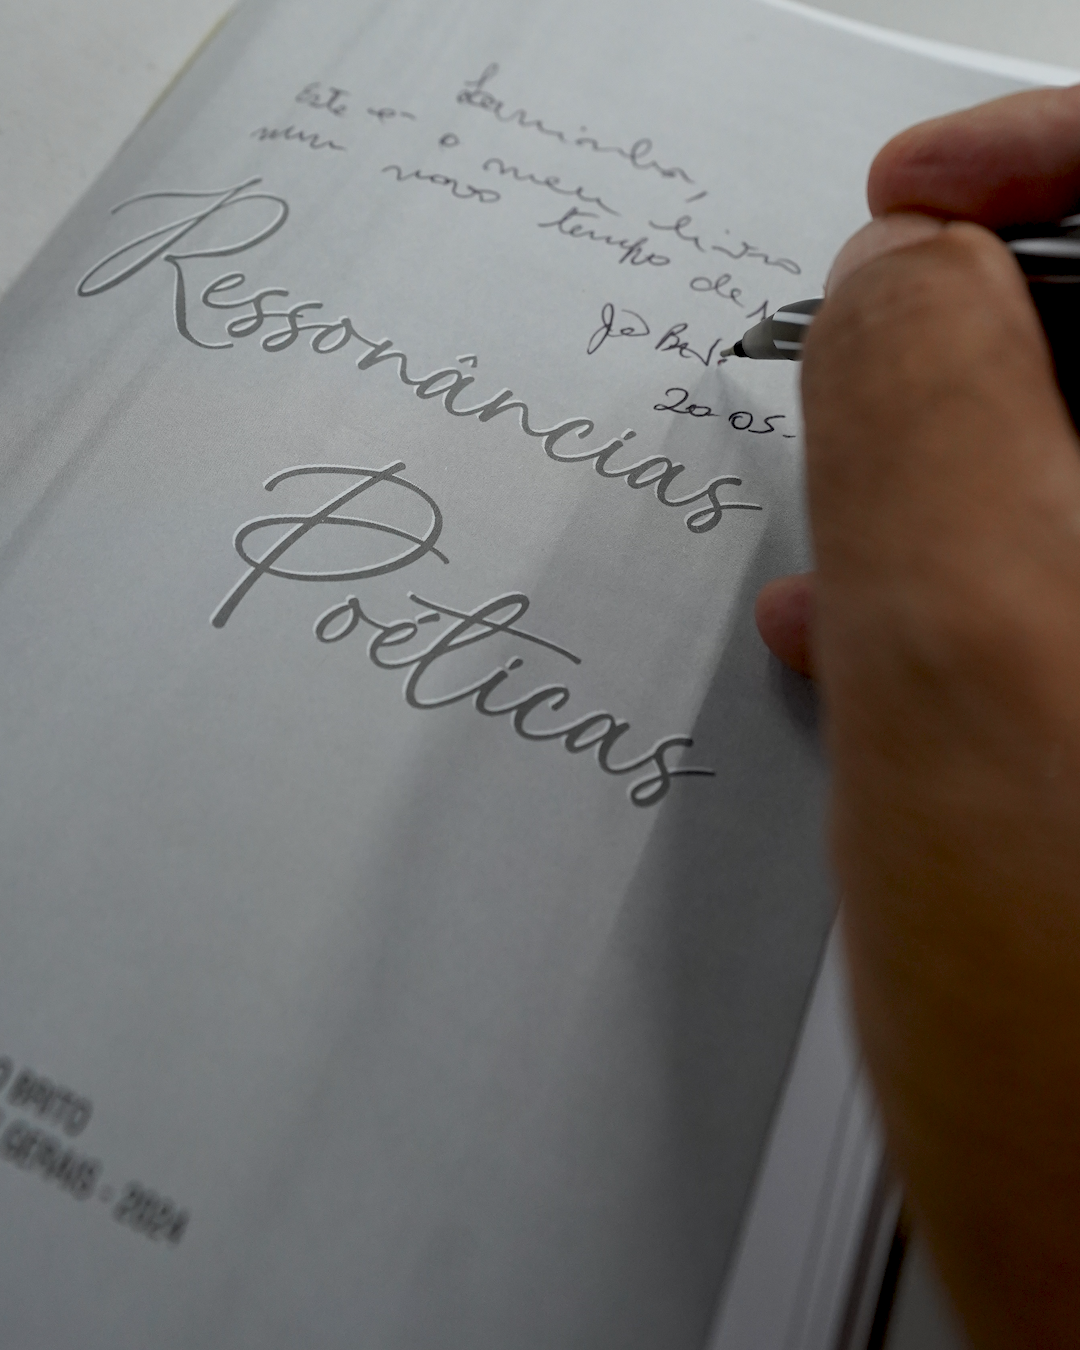 Este é o meu livro
num novo tempo de
20-05-
Ressonâncias
Poéticas
BRITO
GERAIS - 2024